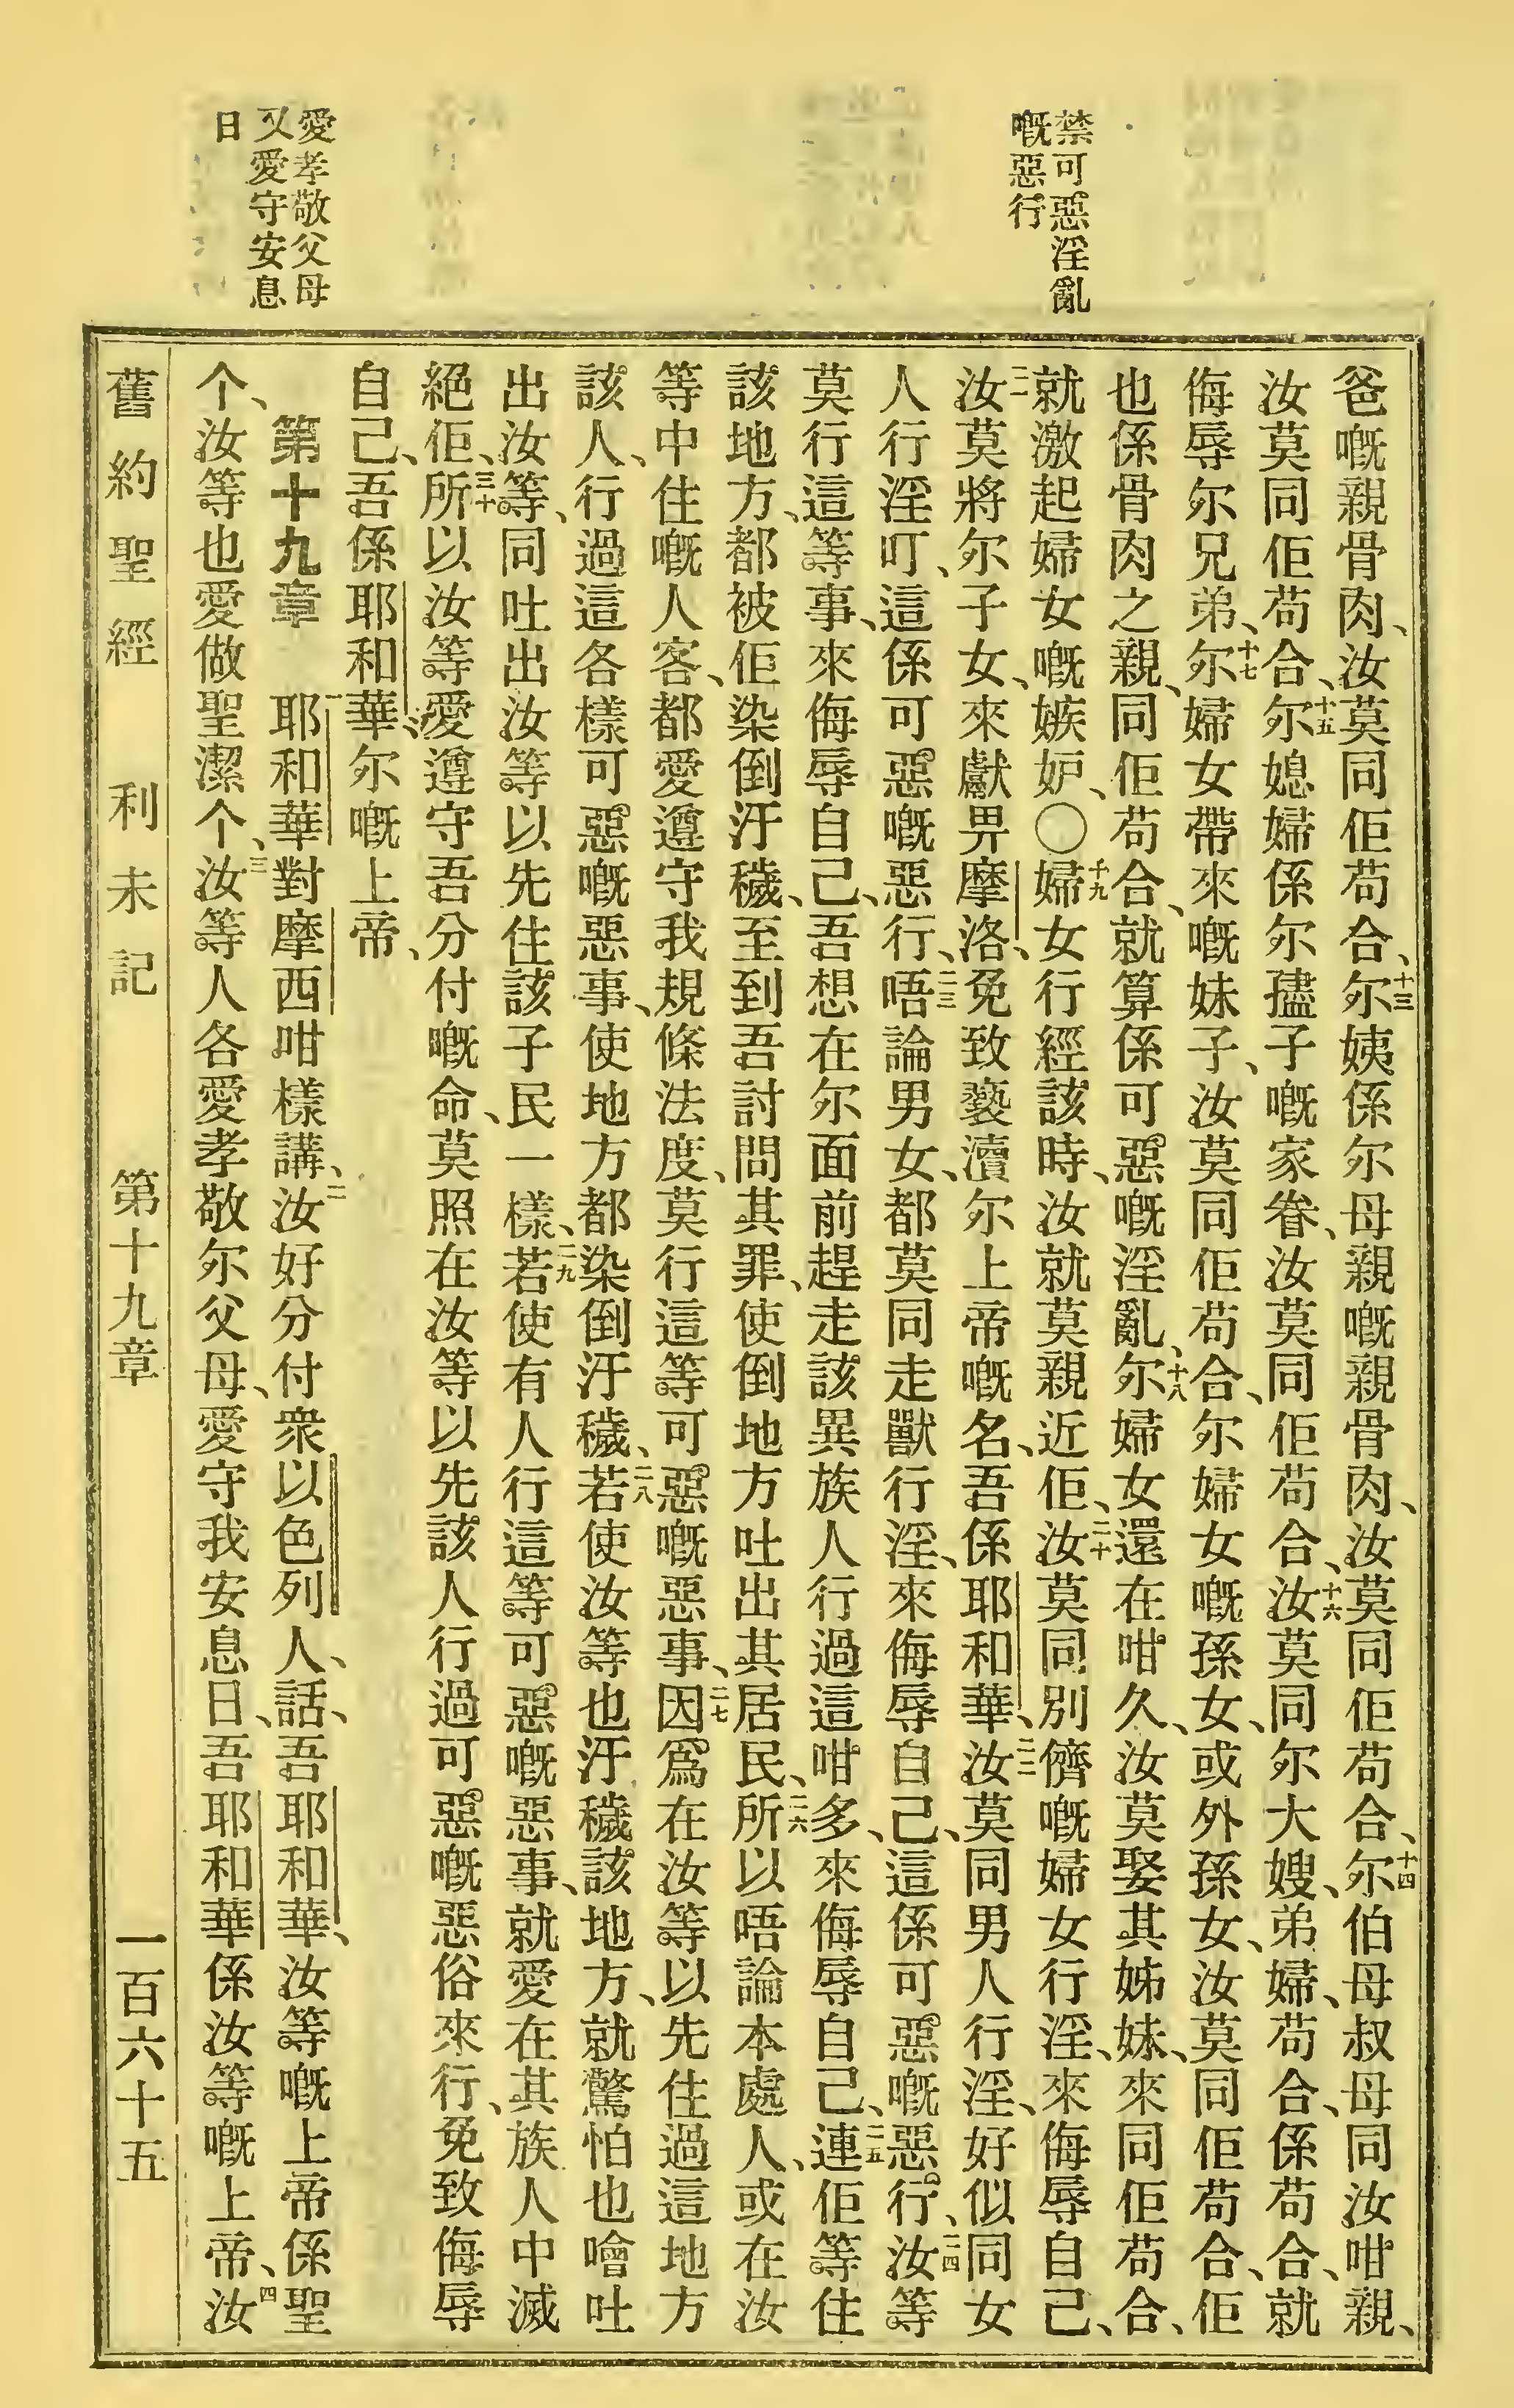 禁可惡淫亂
嘅惡行
愛孝敬父母
又愛守安息
日
爸嘅親骨肉、汝莫同佢苟合、十三尔姨係尔母親嘅親骨肉、汝莫同佢苟合、十四尔伯母叔母同汝咁親、
汝莫同佢苟合、十五尔媳婦係尔𡥧子嘅家眷、汝莫同佢苟合、十六汝莫同尔大嫂、弟婦、苟合、係苟合、就
侮辱尔兄弟、十七尔婦女帶來嘅妹子、汝莫同佢苟合、尔婦女嘅孫女、或外孫女、汝莫同佢苟合、佢
也係骨肉之親、同佢苟合、就算係可惡嘅淫亂、十八尔婦女還在咁久、汝莫娶其姊妹、來同佢苟合、
就激起婦女嘅嫉妒、〇十九婦女行經該時、汝就莫親近佢、二十汝莫同別儕嘅婦女行淫、來侮辱自己、
二一汝莫將尔子女、來獻畀摩洛、免致褻瀆尔上帝嘅名、吾係耶和華、二二汝莫同男人行淫、好似同女
人行淫叮、這係可惡嘅惡行、二三唔論男女、都莫同走獸行淫、來侮辱自己、這係可惡嘅惡行、二四汝等
莫行這等事、來侮辱自己、吾想在尔面前趕走該異族人行過這咁多、來侮辱自己、二五連佢等住
該地方、都被佢染倒汙穢、至到吾討問其罪、使倒地方吐出其居民、二六所以唔論本處人、或在汝
等中住嘅人客、都愛遵守我規條法度、莫行這等可惡嘅惡事、二七因爲在汝等以先住過這地方
該人、行過這各樣可惡嘅惡事、使地方都染倒汙穢、二八若使汝等也汙穢該地方、就驚怕也噲吐
出汝等、同吐出汝等以先住該子民一樣、二九若使有人行這等可惡嘅惡事、就愛在其族人中滅
絕佢、三十所以汝等愛遵守吾分付嘅命、莫照在汝等以先該人行過可惡嘅惡俗來行、免致侮辱
自己、吾係耶和華、尔嘅上帝、
第十九章 一耶和華對摩西咁樣講、二汝好分付衆以色列人、話、吾耶和華、汝等嘅上帝係聖
个、汝等也愛做聖潔个、三汝等人各愛孝敬尔父母、愛守我安息日、吾耶和華係汝等嘅上帝、四汝
舊約聖經 利未記 第十九章 一百六十五